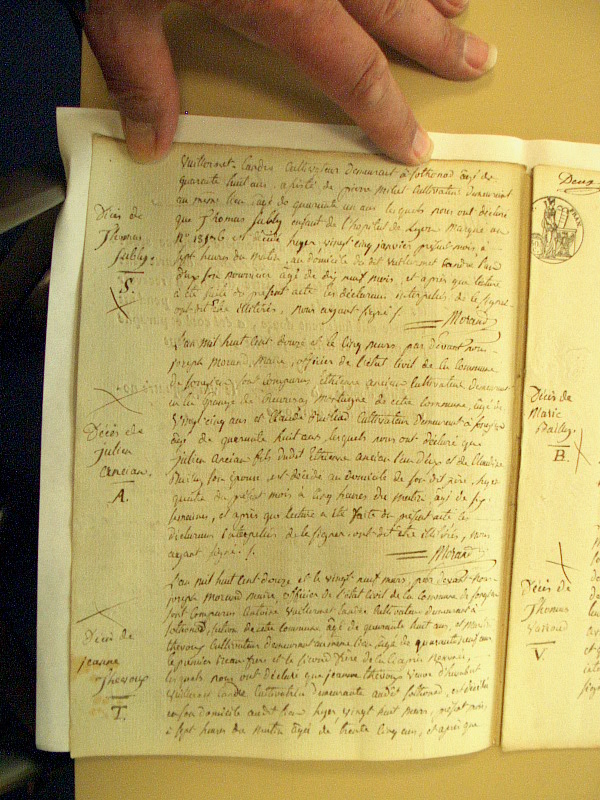 Décès de
Thomas
Subly.
S.
Vuillermet Landre Cultivateur Demeurant à Solthonod âgé de
quarante huit ans, assisté de pierre Millet Cultivateur Demeurant
au même lieu âgé de quarante un ans lesquels nous ont déclaré
que Thomas Subly enfant de l'hopital de Lyon marqué au
est décédé hyer vingt cinq janvier présent mois à
sept heures du matin, au domicile du dit Vuillermet
son nourricier âgé de dix neuf mois, et après que lecture
a été faite du présent acte les déclarans interpellés de le signer
ont dit être illitérés, nous ayant signé /.
Morand
Décès de
julien
Ancian.
A.
L'an mil huit Cent Douze et le Cinq mars, par devant nous
joseph Morand, Maire, officier de l'état Civil de la Commune
de sont Comparus Ethienne ancian Cultivateur Demeurant
en la grange de montagne de cette Commune, âgé de
Vingt cinq ans et Claude Cultivateur Demeurant à
âgé de quarante huit ans, lesquels nous ont déclaré que
julien Ancian fils dudit Ethienne ancian et de Claudine
Bailly son épouse, est décédé au domicile de son dit père, hyer
quatre du présent mois à Cinq heures du matin âgé de six
semaines, et après que lecture a été faite du présent acte les
déclarans interpellés de le signer ont dit être illitérés, nous
ayant signé /.
Morand
Décès de
jeanne
Thevoux
T.
L'an mil huit Cent Douze et le vingt neuf mars, par devant nous
joseph morand maire, officier de l'état Civil de la Commune de
sont Comparus antoine Vuillermet Landre Cultivateur demeurant à
Solthonod, section de cette commune âgé de quarante huit ans, et
thevoux Cultivateur demeurant au même lieu, âgé de quarante neuf ans
le premier Beau frère et le second frère de la Ci après nommée,
lesquels nous ont déclaré que jeanne thevoux veuve
Vuillermet Landre Cultivatrice demeurante audit Solthonod, est décédée
en son Domicile audit lieu hyer vingt huit mars, présent mois,
à sept heures du matin âgée de trente cinq ans, et après que
Deux
Décès de
Marie
Bailly.
B.
Décès de
Thomas
V.